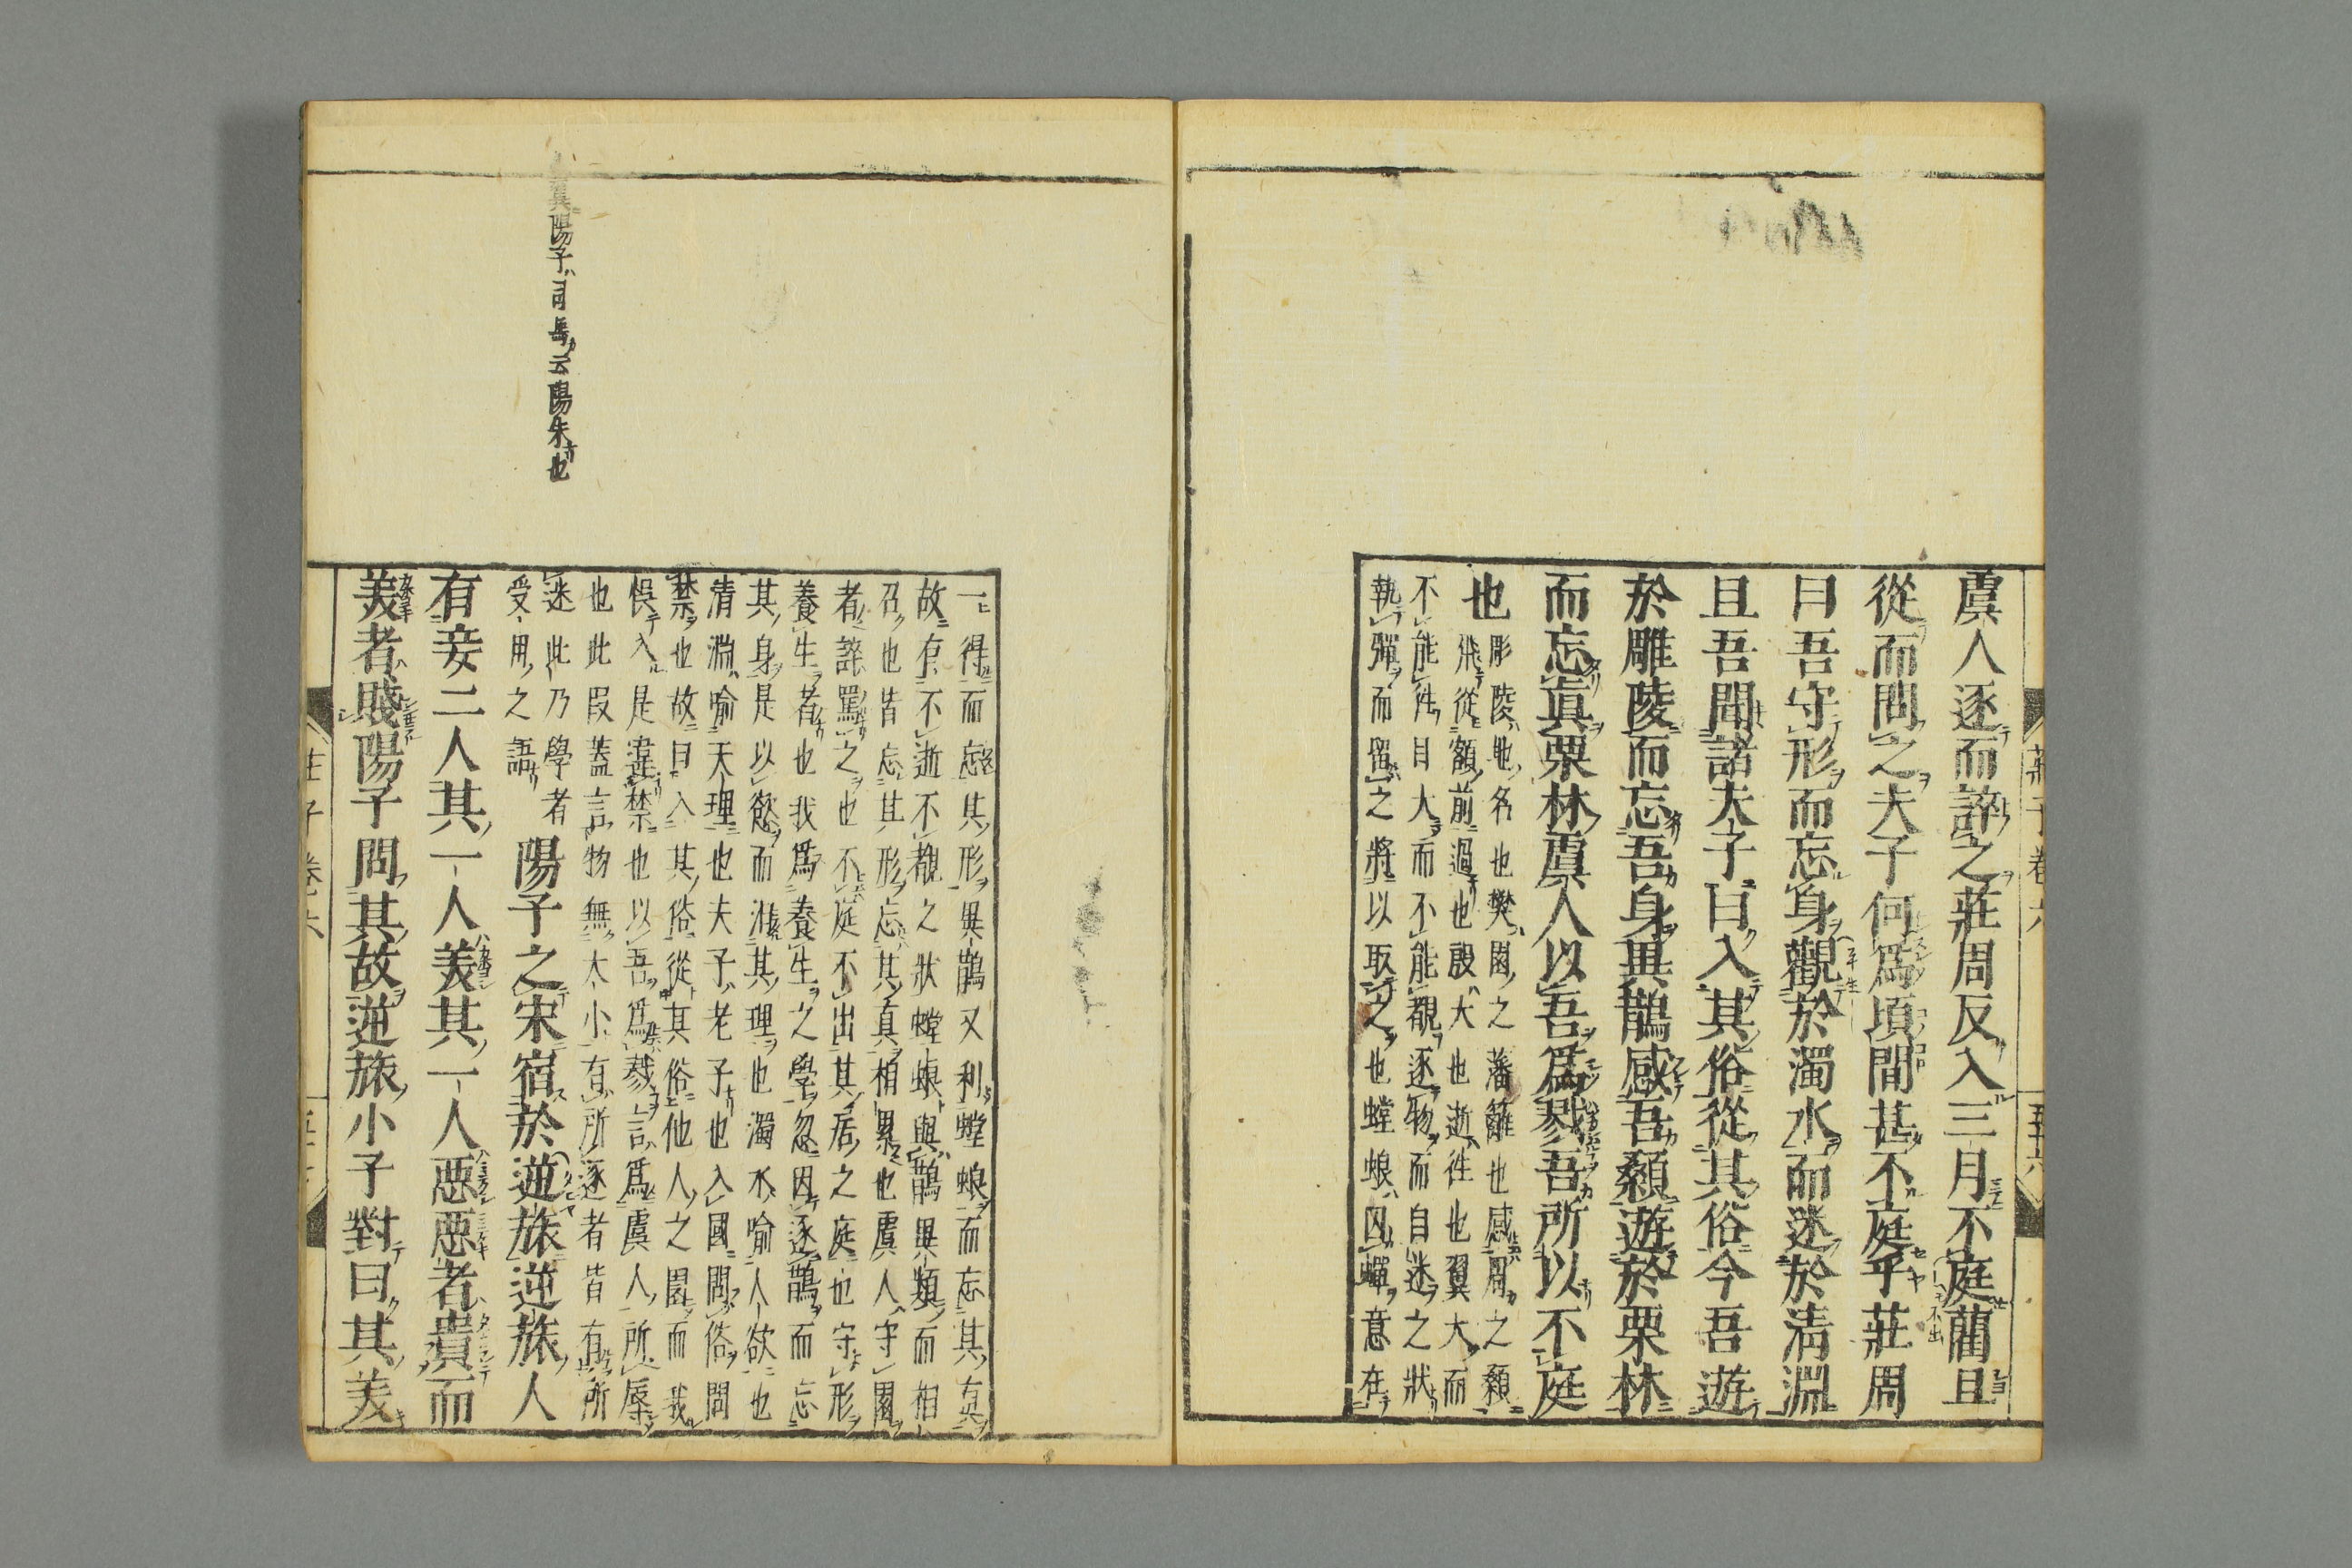 虞人逐而誶之莊周反入三月不庭藺且
從而問之夫子何爲頃間甚不庭乎莊周
曰吾守形而忘身觀於濁水而迷於清淵
且吾聞諸夫子曰入其俗從其俗今吾遊
於雕陵而忘吾身異鵲感吾顙遊於栗林
而忘眞栗林虞人以吾爲戮吾所以不庭
也
彫陵地名也樊園之藩籬也感周之顙
飛從額前過也殷大也逝往也翼大而
不能往目大而不能覩逐物而自迷之狀
執彈而留之將以取之也螳蜋因蟬意在
一得而忘其形異鵲又利螳蜋而忘其真
故有不逝不覩之狀螳蜋與鵲異類而相
召也皆忘其形忘其真相累也虞人守園
者誶罵之也不庭不出其居之庭也守形
養生者也我爲養生之學忽因逐鵲而忘
其身是以慾而淆其理也濁水喻人欲也
清淵喻天理也夫子老子也入國問俗問
禁也故曰入其俗從其俗他人之園而我
悞入是違禁也以吾爲戮言爲虞人所辱
也此段蓋言物無大小有所逐者皆有所
迷此乃學者
受用之語
陽子之宋宿於逆旅逆旅人
有妾二人其一人美其一人惡惡者貴而
美者賤陽子問其故逆旅小子對曰其美
陽子司馬云陽朱也
莊子卷六
五十六